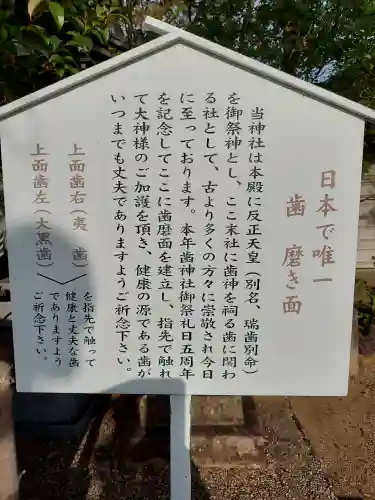 日本で唯一
歯磨き面
当神社は本殿に反正天皇(別名、瑞歯別命)
を御祭神とし、ここ末社に歯神を祠る歯に関わ
る社として、古より多くの方々に崇敬され今日
に至っております。本年歯神社御祭礼日五周年
を記念してここに歯磨面を建立し、指先で触れ
て大神様のご加護を頂き、健康の源である歯が
いつまでも丈夫でありますようご祈念下さい。
上面歯右(夷 歯)
上面歯左(大黒歯)
を指先で触って
健康と丈夫な歯
でありますよう
ご祈念下さい。